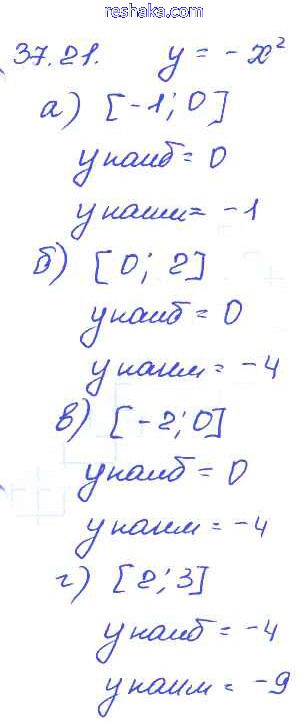 reshaka.com
37.21. y = -x²
а) [-1; 0]
yнаиб = 0
yнаим = -1
б) [0; 2]
yнаиб = 0
yнаим = -4
в) [-2; 0]
yнаиб = 0
yнаим = -4
г) [2; 3]
yнаиб = -4
yнаим = -9